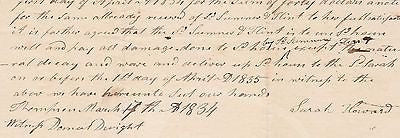 first day of April AD 1834 for the Sum of forty dollars and
for the Same allready received of Sd Summer D Flint to her full satisfac
it is further agreed that the Sd Flint is to
well and pay all damage done to Sd house by Sd Summer Flint except natu
ral decay and ware and deliver up Sd house to the Sd Sarah
on or before the 1st day of April AD 1835 in witness to the
above we have hereunto Set our hands
Thompson March the AD 1834 Sarah Howard
Witness Domat Dwight